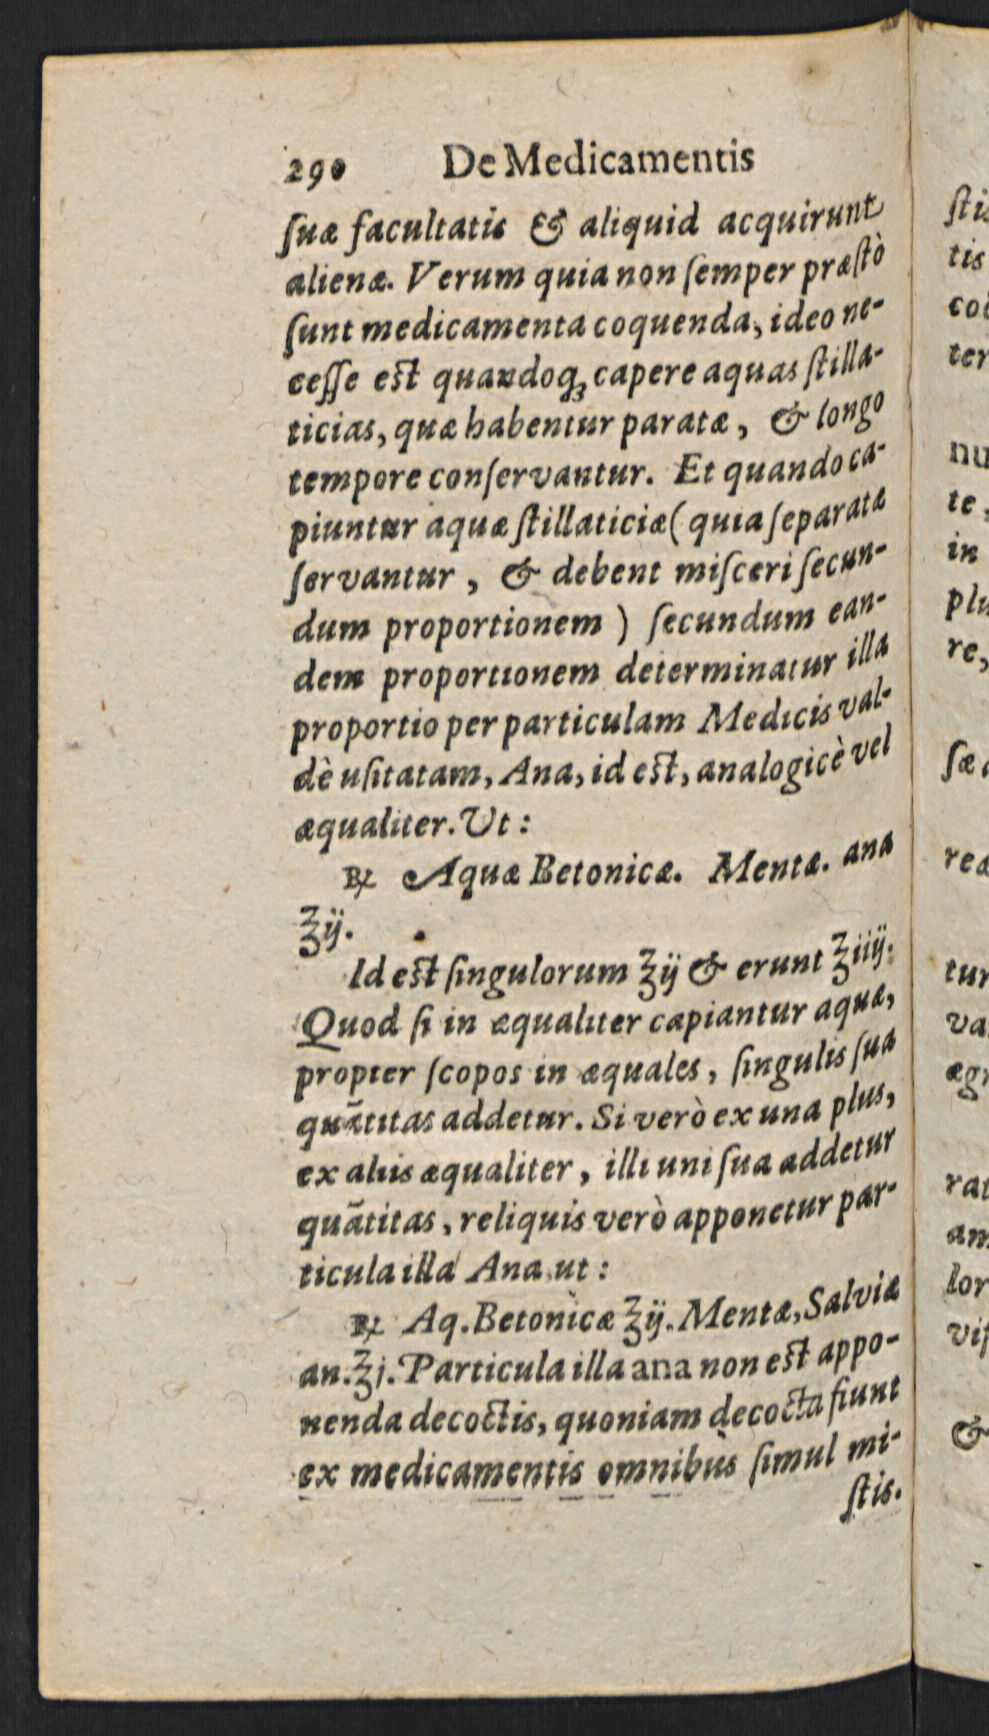 290 De Medicamentis
ſuæ facultatis & aliquid acquirunt
alienæ. Verum quia non ſemper præſtò
ſunt medicamenta coquenda, ideo ne-
ceſſe eſt quandoq; capere aquas ſtilla-
ticias, quæ habentur paratæ, & longo
tempore conſervantur. Et quando ca-
piuntur aquæ ſtillaticiæ (quia ſeparatæ
ſervantur, & debent miſceri ſecun-
dum proportionem) ſecundum ean-
dem proportionem determinatur illa
proportio per particulam Medicis val-
dè uſitatam, Ana, id eſt, analogicè vel
æqualiter. Ut:
℞ Aquæ Betonicæ. Mentæ. ana
℥ij.
Id eſt ſingulorum ℥ij & erunt ℥iiij.
Quod ſi in æqualiter capiantur aquæ,
propter ſcopos in æquales, ſingulis ſua
quātitas addetur. Si verò ex una plus,
ex aliis æqualiter, illi uni ſua addetur
quātitas, reliquis verò apponetur par-
ticula illa Ana ut:
℞ Aq. Betonicæ ℥ij. Mentæ, Salviæ
an. ℥j. Particula illa ana non eſt appo-
nenda decoctis, quoniam decocta fiunt
ex medicamentis omnibus ſimul mi-
ſtis.
ſtis
tis
ter
nu
te,
in
plu
re,
tur
&